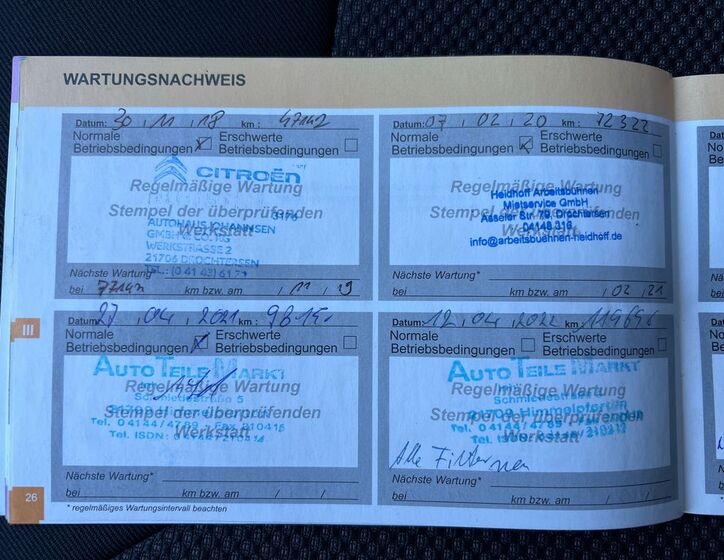 WARTUNGSNACHWEIS
Datum: 30 , 11 , 18 km : 47142
Normale Betriebsbedingungen X
Erschwerte Betriebsbedingungen
CITROËN
Regelmäßige Wartung
Stempel der überprüfenden
Werkstatt
AUTOHAUS JOHANNSEN
GMBH & CO. KG
WERKSTRASSE 2
21706 DROCHTERSEN
Nächste Wartung*
bei km bzw. am / 11 / 19
Datum: 07 , 02 , 20 km : 72322
Normale Betriebsbedingungen X
Erschwerte Betriebsbedingungen
Regelmäßige Wartung
Stempel der überprüfenden
Werkstatt
Heidhoff Arbeitsbühnen
Mietservice GmbH
Asseler Str. 79, Drochtersen
04148 316
info@arbeitsbuehnen-heidhoff.de
Nächste Wartung*
bei km bzw. am / 02 / 21
III
Datum: 27 , 04 , 2021 km :
Normale Betriebsbedingungen X
Erschwerte Betriebsbedingungen
AUTO TEILE MARKT
Regelmäßige Wartung
Schmiedestraße 5
Stempel der überprüfenden
Werkstatt
Tel. 0 41 44 / 47 89 Fax 210416
Tel. ISDN:
Nächste Wartung*
bei km bzw. am / /
Datum: 12 , 04 , 2022 km : 119696
Normale Betriebsbedingungen
Erschwerte Betriebsbedingungen
AUTO TEILE MARKT
Regelmäßige Wartung
Stempel der überprüfenden
21709 Himmelpforten
Tel. 0 41 44 / 47 89
Werkstatt
Tel. ISDN:
Alle Filter neu
Nächste Wartung*
bei km bzw. am / /
26
* regelmäßiges Wartungsintervall beachten